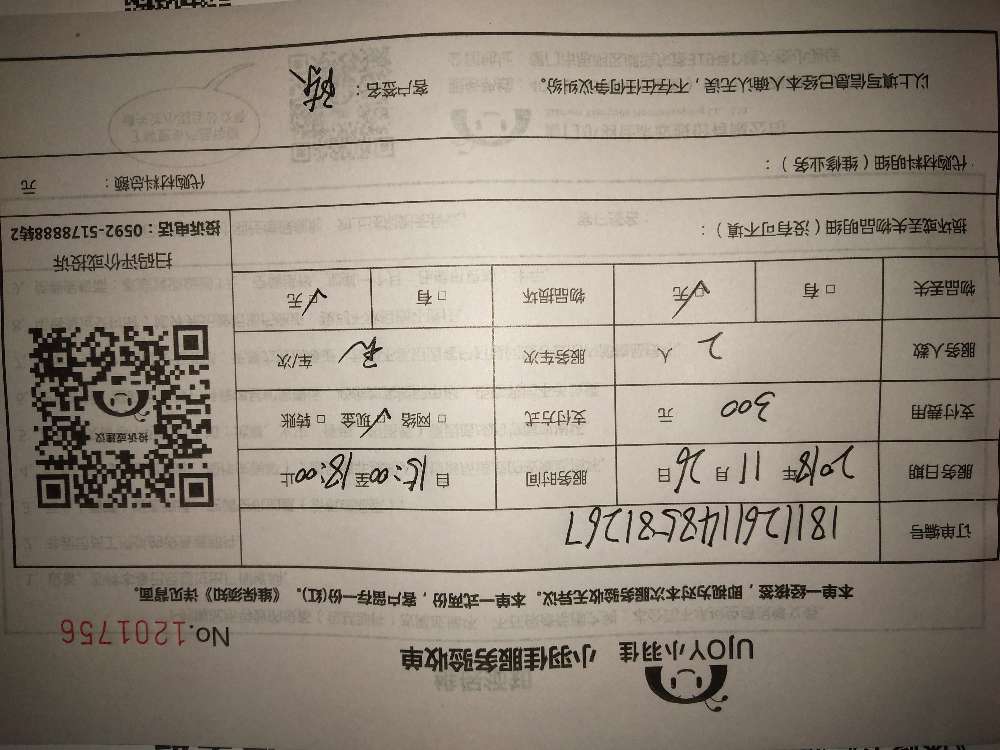 UJOY小羽佳 小羽佳服务验收单
No.1201756
本单一经接签，即视为对本次服务验收无异议。本单一式两份，客户留存一份(红)。《维保须知》详见背面。
订单编号 181126114858126 7
服务日期 2018年 11月 26日 服务时间 自 15:00至18:00止
支付费用 300 元 支付方式 □ 网络 ☑ 现金 □ 转账
服务人数 2 人 服务车次 车/次
物品丢失 □ 有 ☑ 无 物品损坏 □ 有 ☑ 无
投诉或建议
扫码评价或投诉
投诉电话：0592-5178888转2
损坏或丢失物品明细（没有可不填）：
代购材料明细（维修业务）： 代购材料总额： 元
以上填写信息已经本人确认无误，不存在任何争议纠纷。 客户签名：